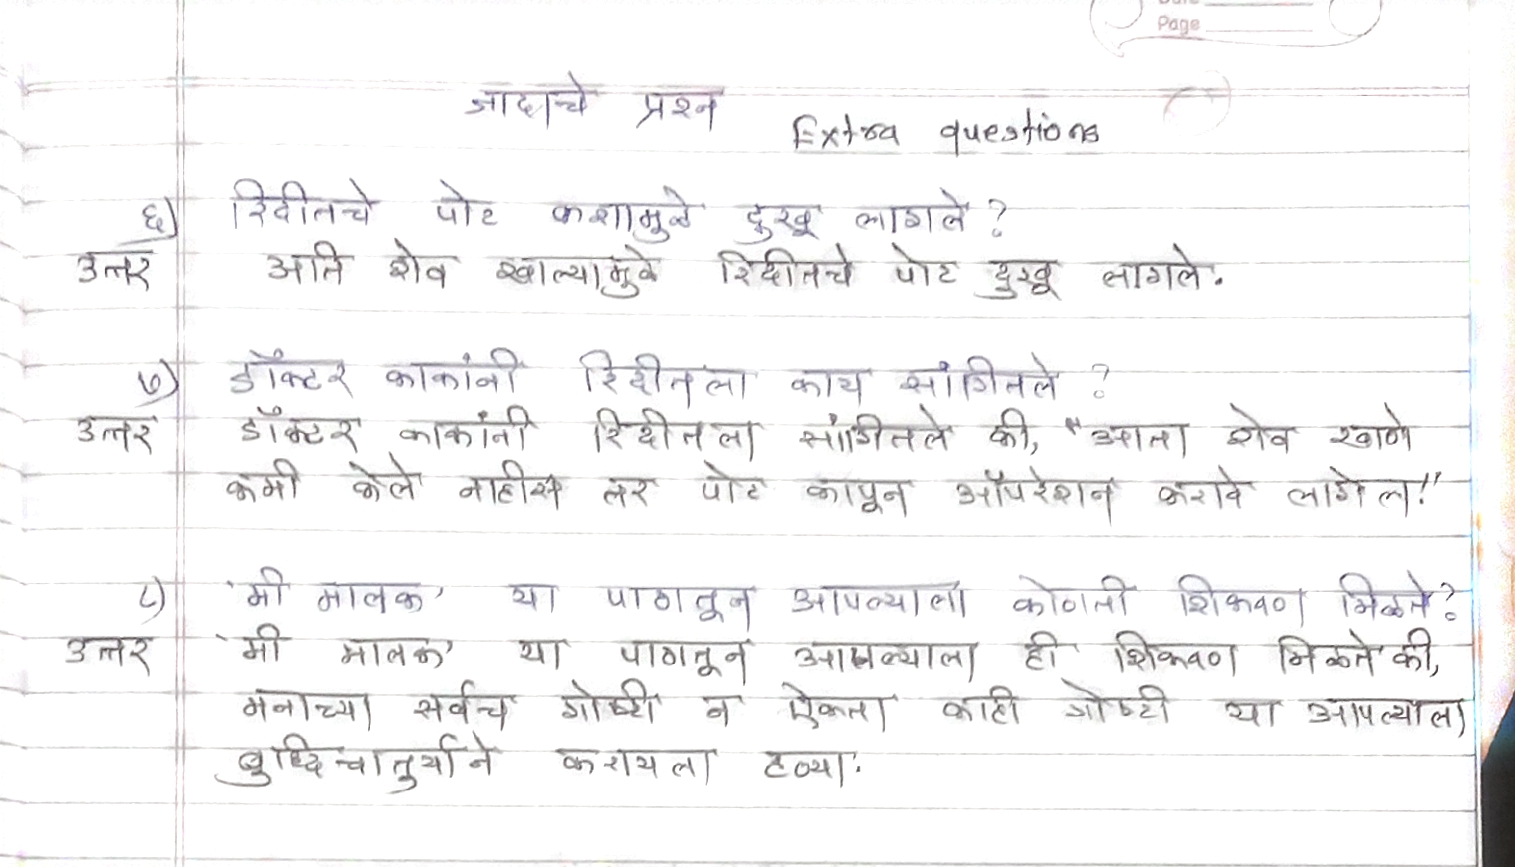 Page
जादाचे प्रश्न
Extra questions
६) रिदीतचे पोट कशामुळे दुखू लागले?
उत्तर अति शेव खाल्यामुळे रिदीतचे पोट दुखू लागले.
७) डॉक्टर काकांनी रिदीतला काय सांगितले?
उत्तर डॉक्टर काकांनी रिदीतला सांगितले की, "आता शेव खाणे
कमी केले नाहीस तर पोट कापून ऑपरेशन करावे लागेल!"
८) 'मी मालक' या पाठातून आपल्याला कोणती शिकवण मिळते?
उत्तर 'मी मालक' या पाठातून आपल्याला ही शिकवण मिळते की,
मनाच्या सर्वच गोष्टी न ऐकता काही गोष्टी या आपल्याला
बुद्धिचातुर्याने करायला हव्या.